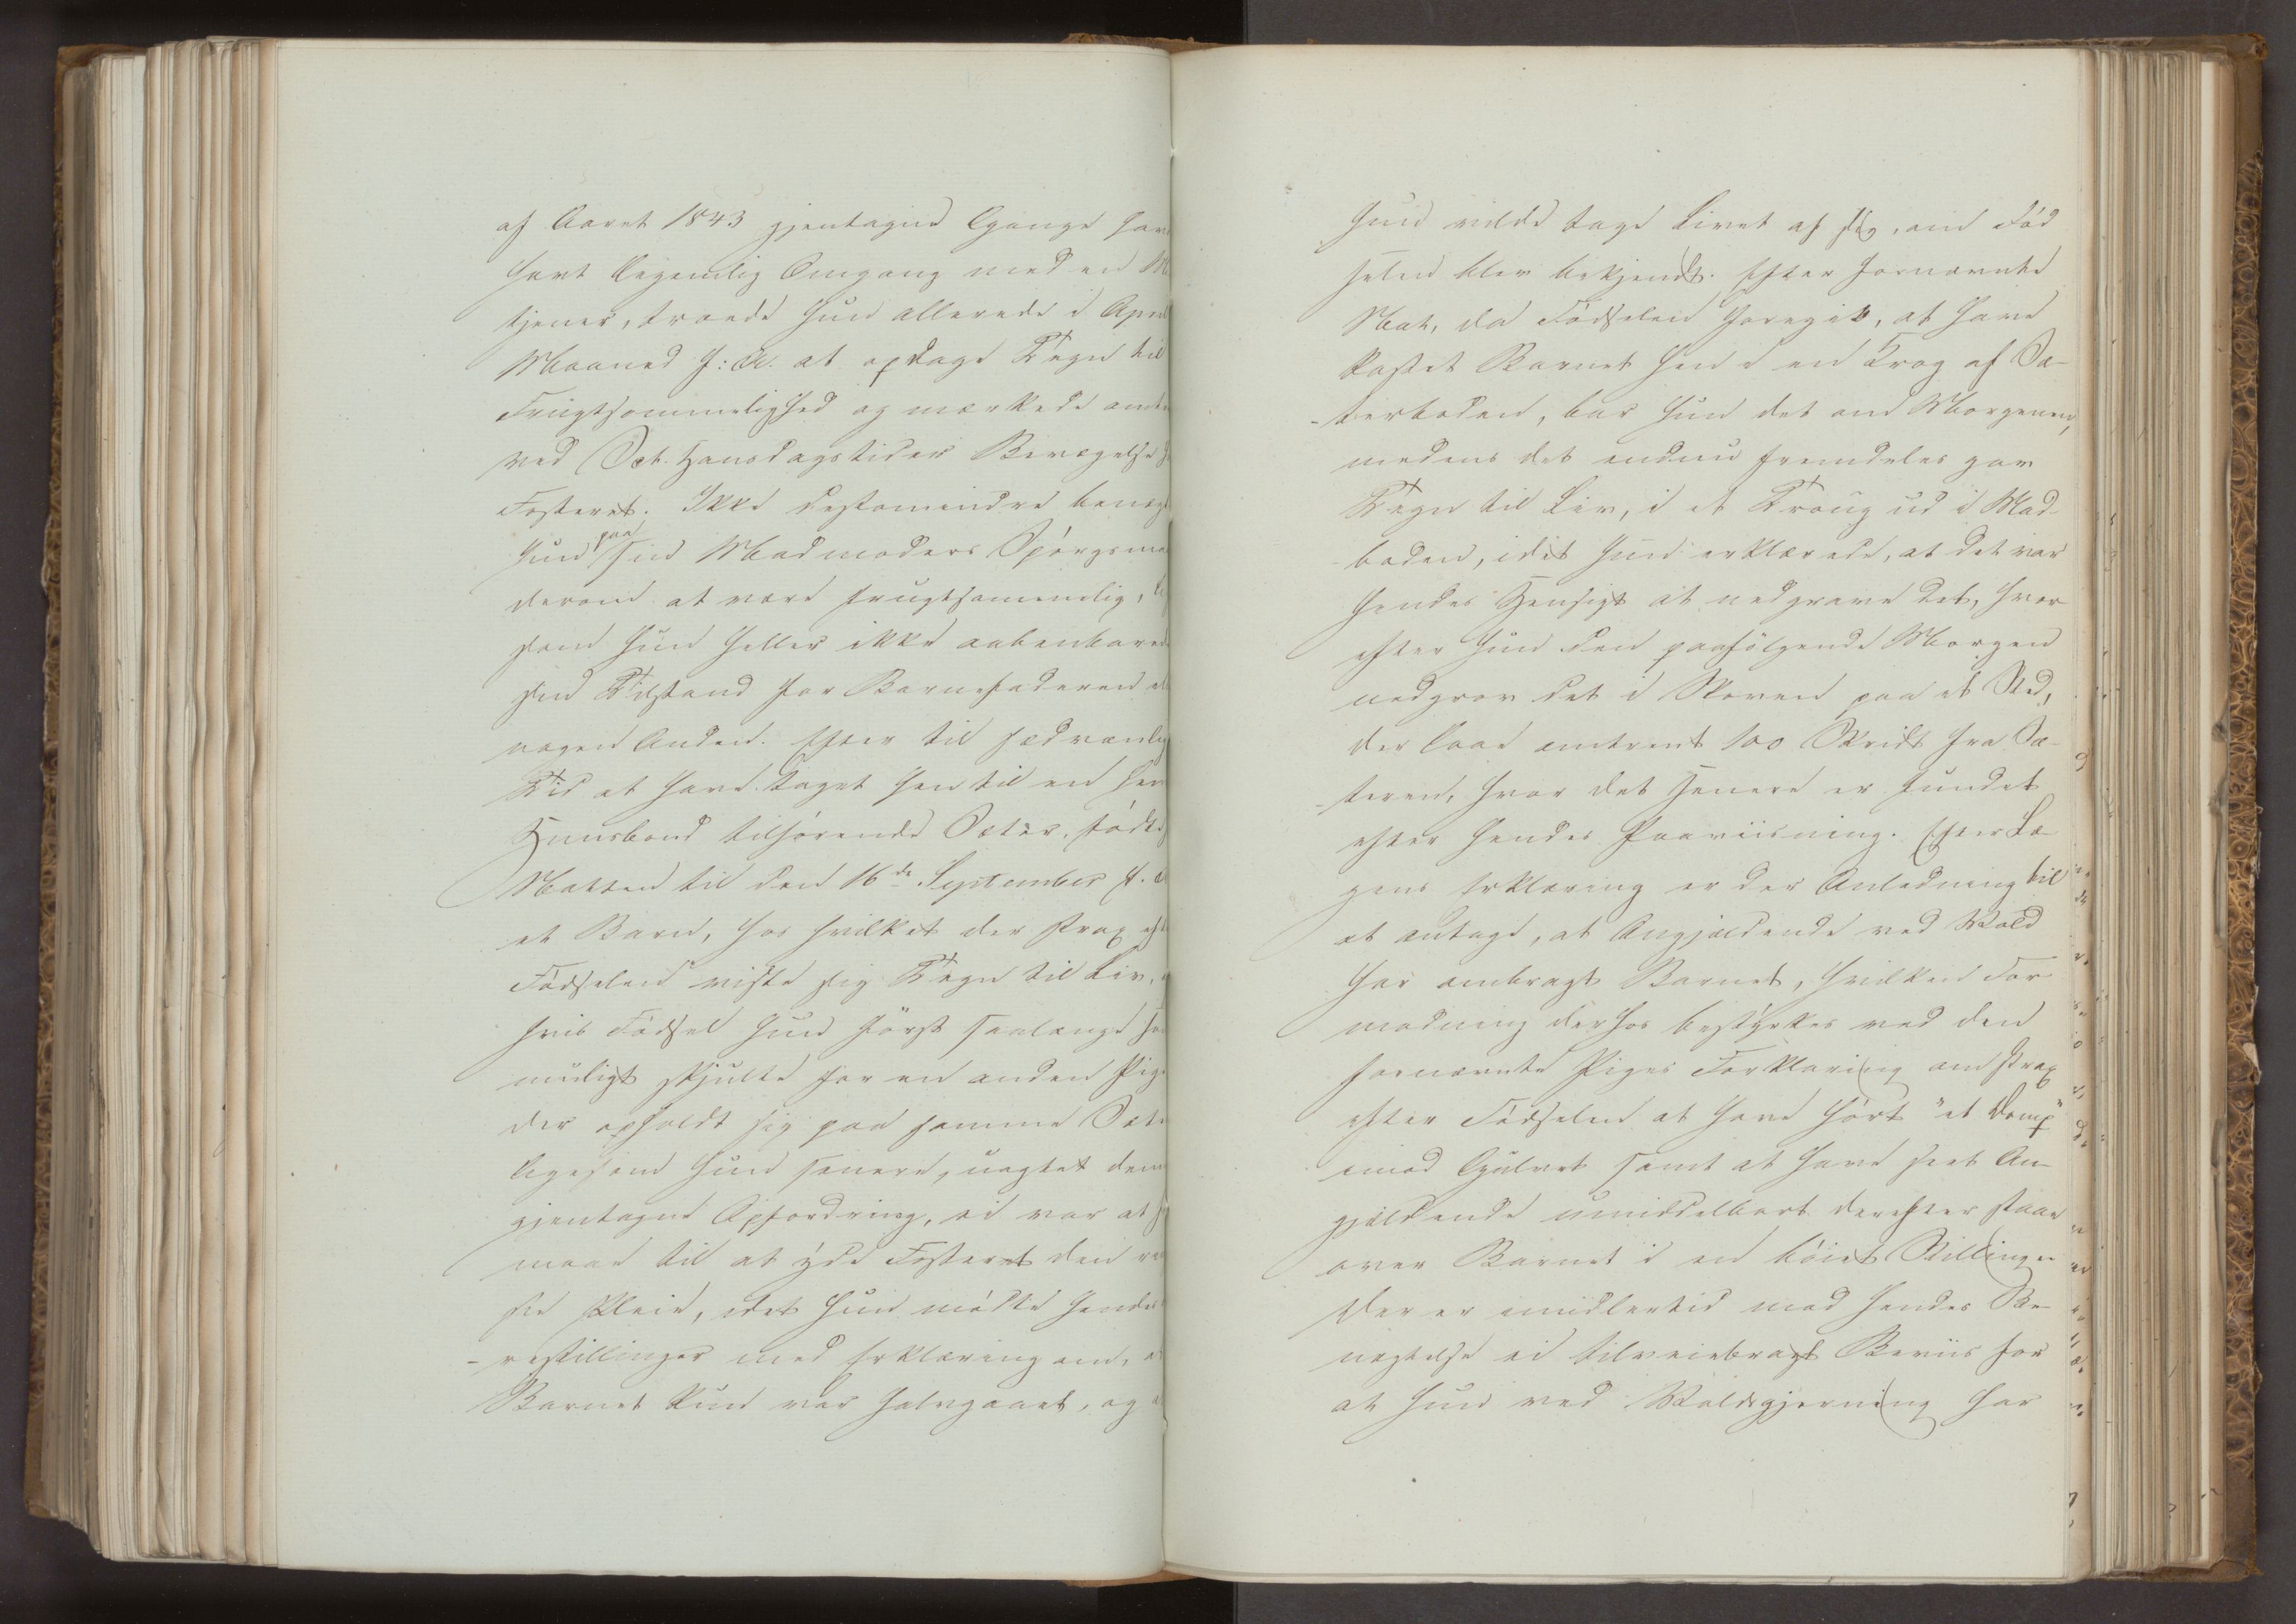 af Aaret 1843 gjentagne Gange hav
havt legemlig Omgang med en M
tjener, troede hun allerede i April
Maaned f: A. at opdage Tegn til
Frugtsommelighed og mærkede omtr
ved Sct. Hansdagstider Bevægelse
Fosteret. Ikke destomindre benæg
hun paa sin Madmoders Spörgsma
derom at være frugtsommelig, li
som hun heller ikke aabenbarede
sin Tilstand for Barnefaderen el
nogen Anden. Efter til sædvanlig
Tid at have taget hen til en hen
Huusbond tilhørende Sæter, fødte
Natten til den 16de September f. A
et Barn, hos hvilket der strax eft
Födselen viste sig Tegn til Liv, o
hvis Födsel hun först saalænge so
muligt skjulte for en anden Pige
der opholdt sig paa samme Sæte
ligesom hun senere, uagtet dennes
gjentagne Opfordring, ei var at f
maae til at yde Fosteret den
ste Pleie, idet hun mödte hendes
-restillinger med Erklæring om, a
Barnet kun var halvgaaet, og a
hun vilde tage Livet af sig, om Föd
selen blev bekjendt. Efter fornævnte
Nat, da Födselen foregik, at have
kastet Barnet hen i en Krog af Sæ-
-terboden, bar hun det om Morgenen,
medens det endnu fremdeles gav
Tegn til Liv, i et Troug ud i Mad-
-boden, idet hun erklærede, at det var
hendes Hensigt at nedgrave det, hvor-
efter hun den paafölgende Morgen
nedgrov det i Skoven paa et Sted,
der laae omtrent 100 Skridt fra Sæ-
-teren, hvor det senere er fundet
efter hendes Paaviisning. Efter Læ-
gens Erklæring er der Anledning til
at antage, at Angjældende ved Vold
har ombragt Barnet, hvilken For-
modning derhos bestyrkes ved den
fornævnte Piges Forklaring om strax
efter Födselen at have hört "et Domp"
imod Gulvet samt at have seet An-
gjældende umiddelbart derefter staae
over Barnet i en böiet Stilling
Der er imidlertid mod hendes Be-
nægtelse ei tilveiebragt Beviis for
at hun ved Voldsgjerning har